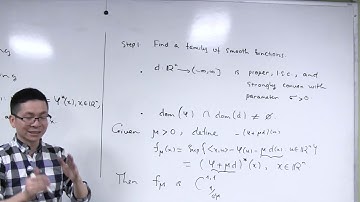 Step 1 Find a family of smooth functions.
ng
• d: ℝⁿ → (-∞, ∞] is proper, l.s.c., and
strongly convex with
ng
parameter σ > 0
φ*(x), x ∈ ℝⁿ,
• dom(φ) ∩ dom(d) ≠ ∅.
Given μ > 0, define -(φ+μd)(u)
f_μ(x) = sup{<x,u> - φ(u) - μd(u), u ∈ ℝⁿ}
= (φ + μd)*(x), x ∈ ℝⁿ
Then f_μ is C^{1,1}
1/σμ